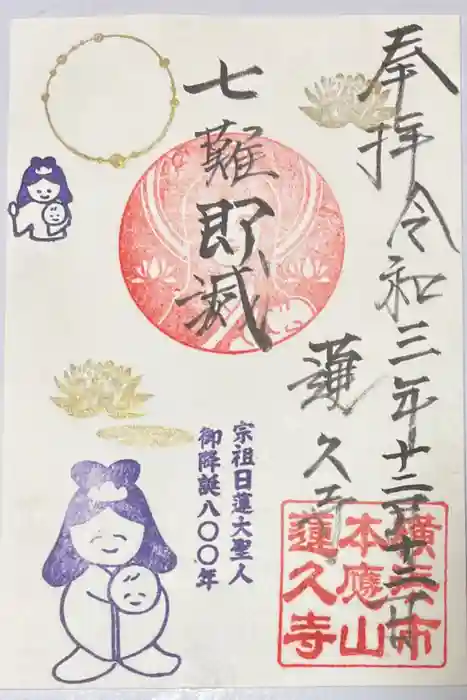 奉拝
令和三年十二月十三日
七難即滅
蓮久寺
宗祖日蓮大聖人
御降誕八〇〇年
本應山
蓮久寺